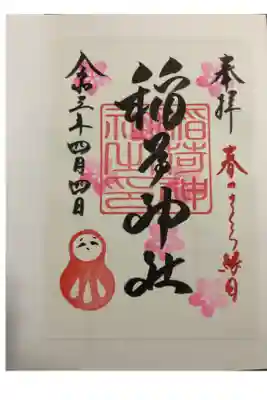 奉拝
春のさくら縁日
稲荷神社
稲荷神
社之印
令和三年四月四日